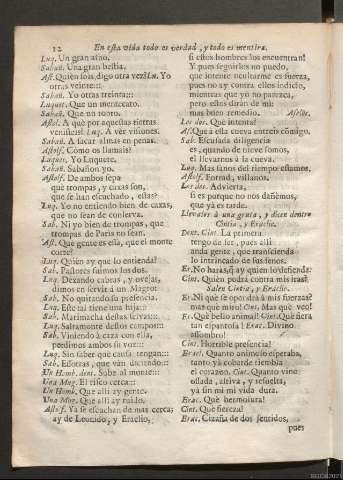 12 En esta vida todo es verdad, y todo es mentira.
Luq. Un gran asno.
Sabañ. Una gran bestia.
Ast. Quien sois, digo otra vez? Luq. Yo
otras veinte:::
Sabañ. Yo otras treinta:::
Luquet. Que un mentecato.
Sabañ. Que un tonto.
Astol. A què por aquestas sierras
venisteis? Luq. A vèr visiones.
Sabañ. A sacar almas en penas.
Astolf. Como os llamais?
Luquet. Yo Luquete.
Sabañ. Sabañon yo.
Astolf. De ambos sepa
que trompas, y caxas son,
que se han escuchado, estas?
Luq. Yo no entiendo bien de caxas,
que no sean de conserva.
Sab. Ni yo bien de trompas, que
trompas de Paris no sean.
Ast. Que gente es esta, que el monte
corre?
Luq. Quien ay que lo entienda?
Sab. Pastores fuimos los dos.
Luq. Dexando cabras, y ovejas,
dimos en servir à un Magro:::
Sab. No quitando su presencia.
Luq. Este tal tiene una hija:::
Sab. Marimacha destas selvas:::
Luq. Saltamonte destos campos:::
Sab. Viniendo à caza con ella,
perdimos ambos su vereda:::
Luq. Sin saber que causa tengan:::
Sab. Essotras, que vàn diciendo:::
Un Homb. dent. Sube al monte:::
Una Mug. El risco cerca:::
Un Homb. Que alli ay gente.
Una Mug. Que alli ay ruido.
Astolf. Ya se escuchan de mas cerca;
ay de Leonido, y Eraclio,
si estos hombres los encuentran!
Y pues seguirlos no puedo,
que intente ocultarme es fuerza,
pues no ay contra ellos indicio,
mientras que yo no parezca,
pero estos daràn de mi:
mas buen remedio. Aselos.
Los dos. Què intenta?
Ast. Que à esta cueva entreis cõmigo.
Sab. Escusada diligencia
es, quando de nieve somos,
el llevarnos à la cueva.
Luq. Mas sanos del tiempo estamos.
Astolf. Entrad, villanos.
Los dos. Advierta,
si es porque no nos dañèmos,
que yà es tarde.
Llevalos à una gruta, y dicen dentro
Cintia, y Eraclio.
Dent. Cint. La primera
tengo de ser, pues alli
anda gente, que transcienda
lo intrincado de sus senos.
Er. No haràs, q̃ ay quien lo defienda.
Cint. Quien podrà contra mis iras?
Salen Cintia, y Eraclio.
Er. Ni què se opondrà à mis fuerzas?
mas què miro! Cint. Mas què veo!
Er. Què bello animal! Cint. Què fiera
tan espantosa! Erac. Divino
assombro!
Cint. Horrible presencia!
Eracl. Quanto animoso esperaba,
tanto yà cobarde tiembla
el corazon. Cint. Quanto vino
ossada, altiva, y resuelta,
yà sin mi mi vida dura.
Erac. Què hermosura!
Cint. Què fiereza!
Erac. Cizaña de dos sentidos,
pues